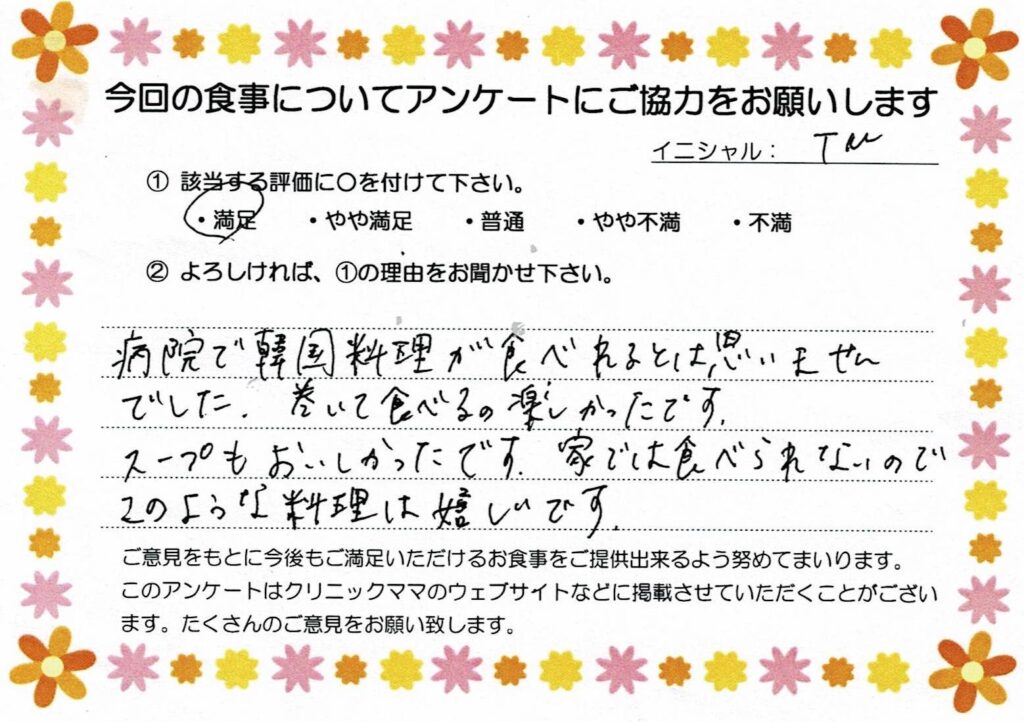 今回の食事についてアンケートにご協力をお願いします
イニシャル： TM
① 該当する評価に○を付けて下さい。
・満足 ・やや満足 ・普通 ・やや不満 ・不満
② よろしければ、①の理由をお聞かせ下さい。
病院で韓国料理が食べれるとは思いません
でした。巻いて食べるの楽しかったです。
スープもおいしかったです。家では食べられないので
このような料理は嬉しいです。
ご意見をもとに今後もご満足いただけるお食事をご提供出来るよう努めてまいります。
このアンケートはクリニックママのウェブサイトなどに掲載させていただくことがござい
ます。たくさんのご意見をお願い致します。